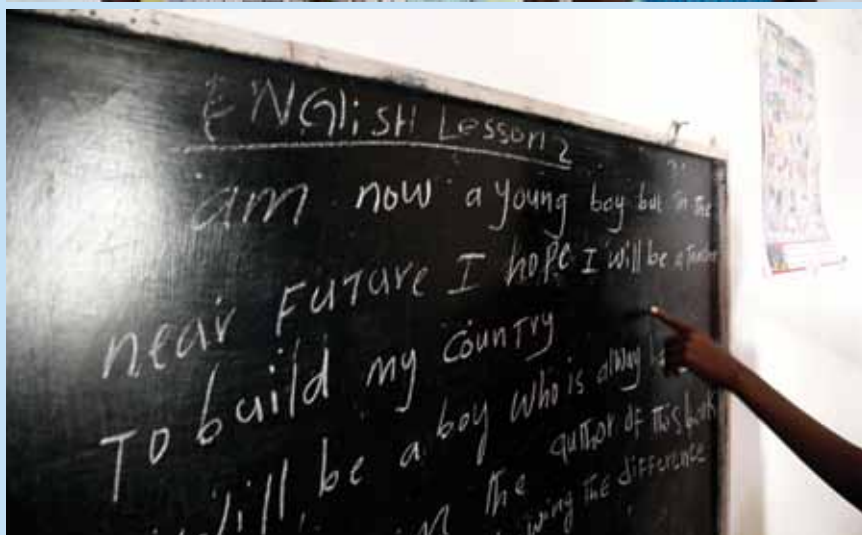 ENGlisH Lesson 2
am now a young boy but in the
near FuTure I hope I will be a Teacher
To build my counTry
will be a boy who is alway
the author of this book
wing The difference